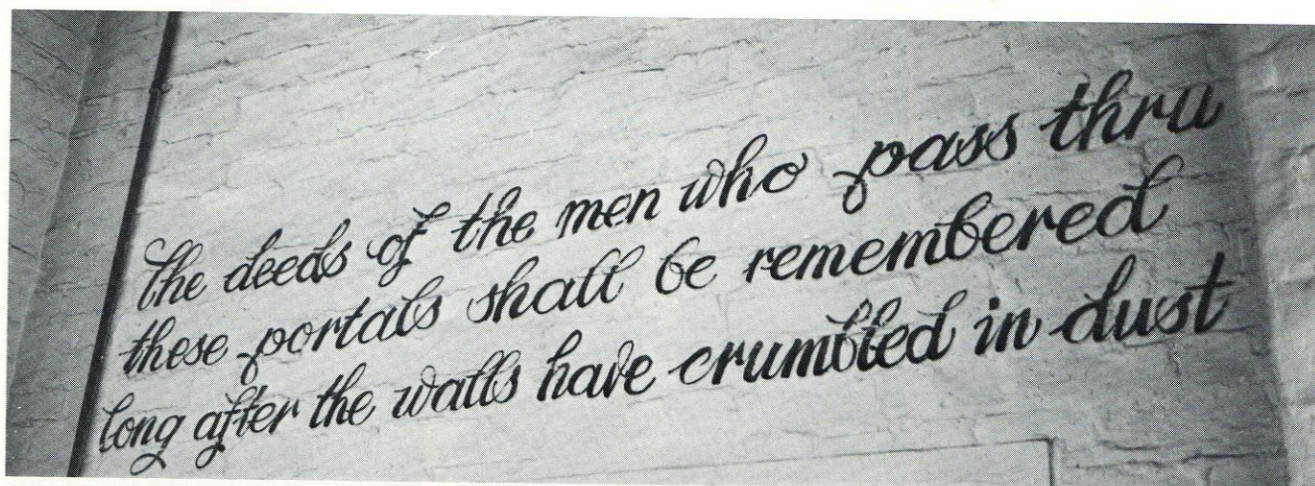 The deeds of the men who pass thru
these portals shall be remembered
long after the walls have crumbled in dust